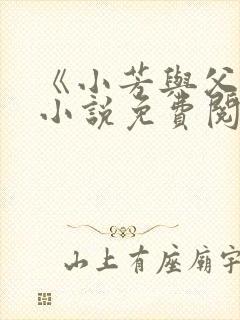 《小芳與父
小說免費閱
山上有座廟宇